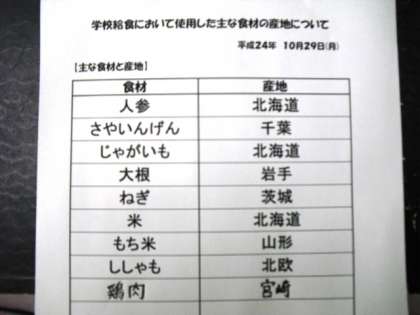 学校給食において使用した主な食材の産地について
平成24年 10月29日(月)
【主な食材と産地】
食材 産地
人参 北海道
さやいんげん 千葉
じゃがいも 北海道
大根 岩手
ねぎ 茨城
米 北海道
もち米 山形
ししゃも 北欧
鶏肉 宮崎